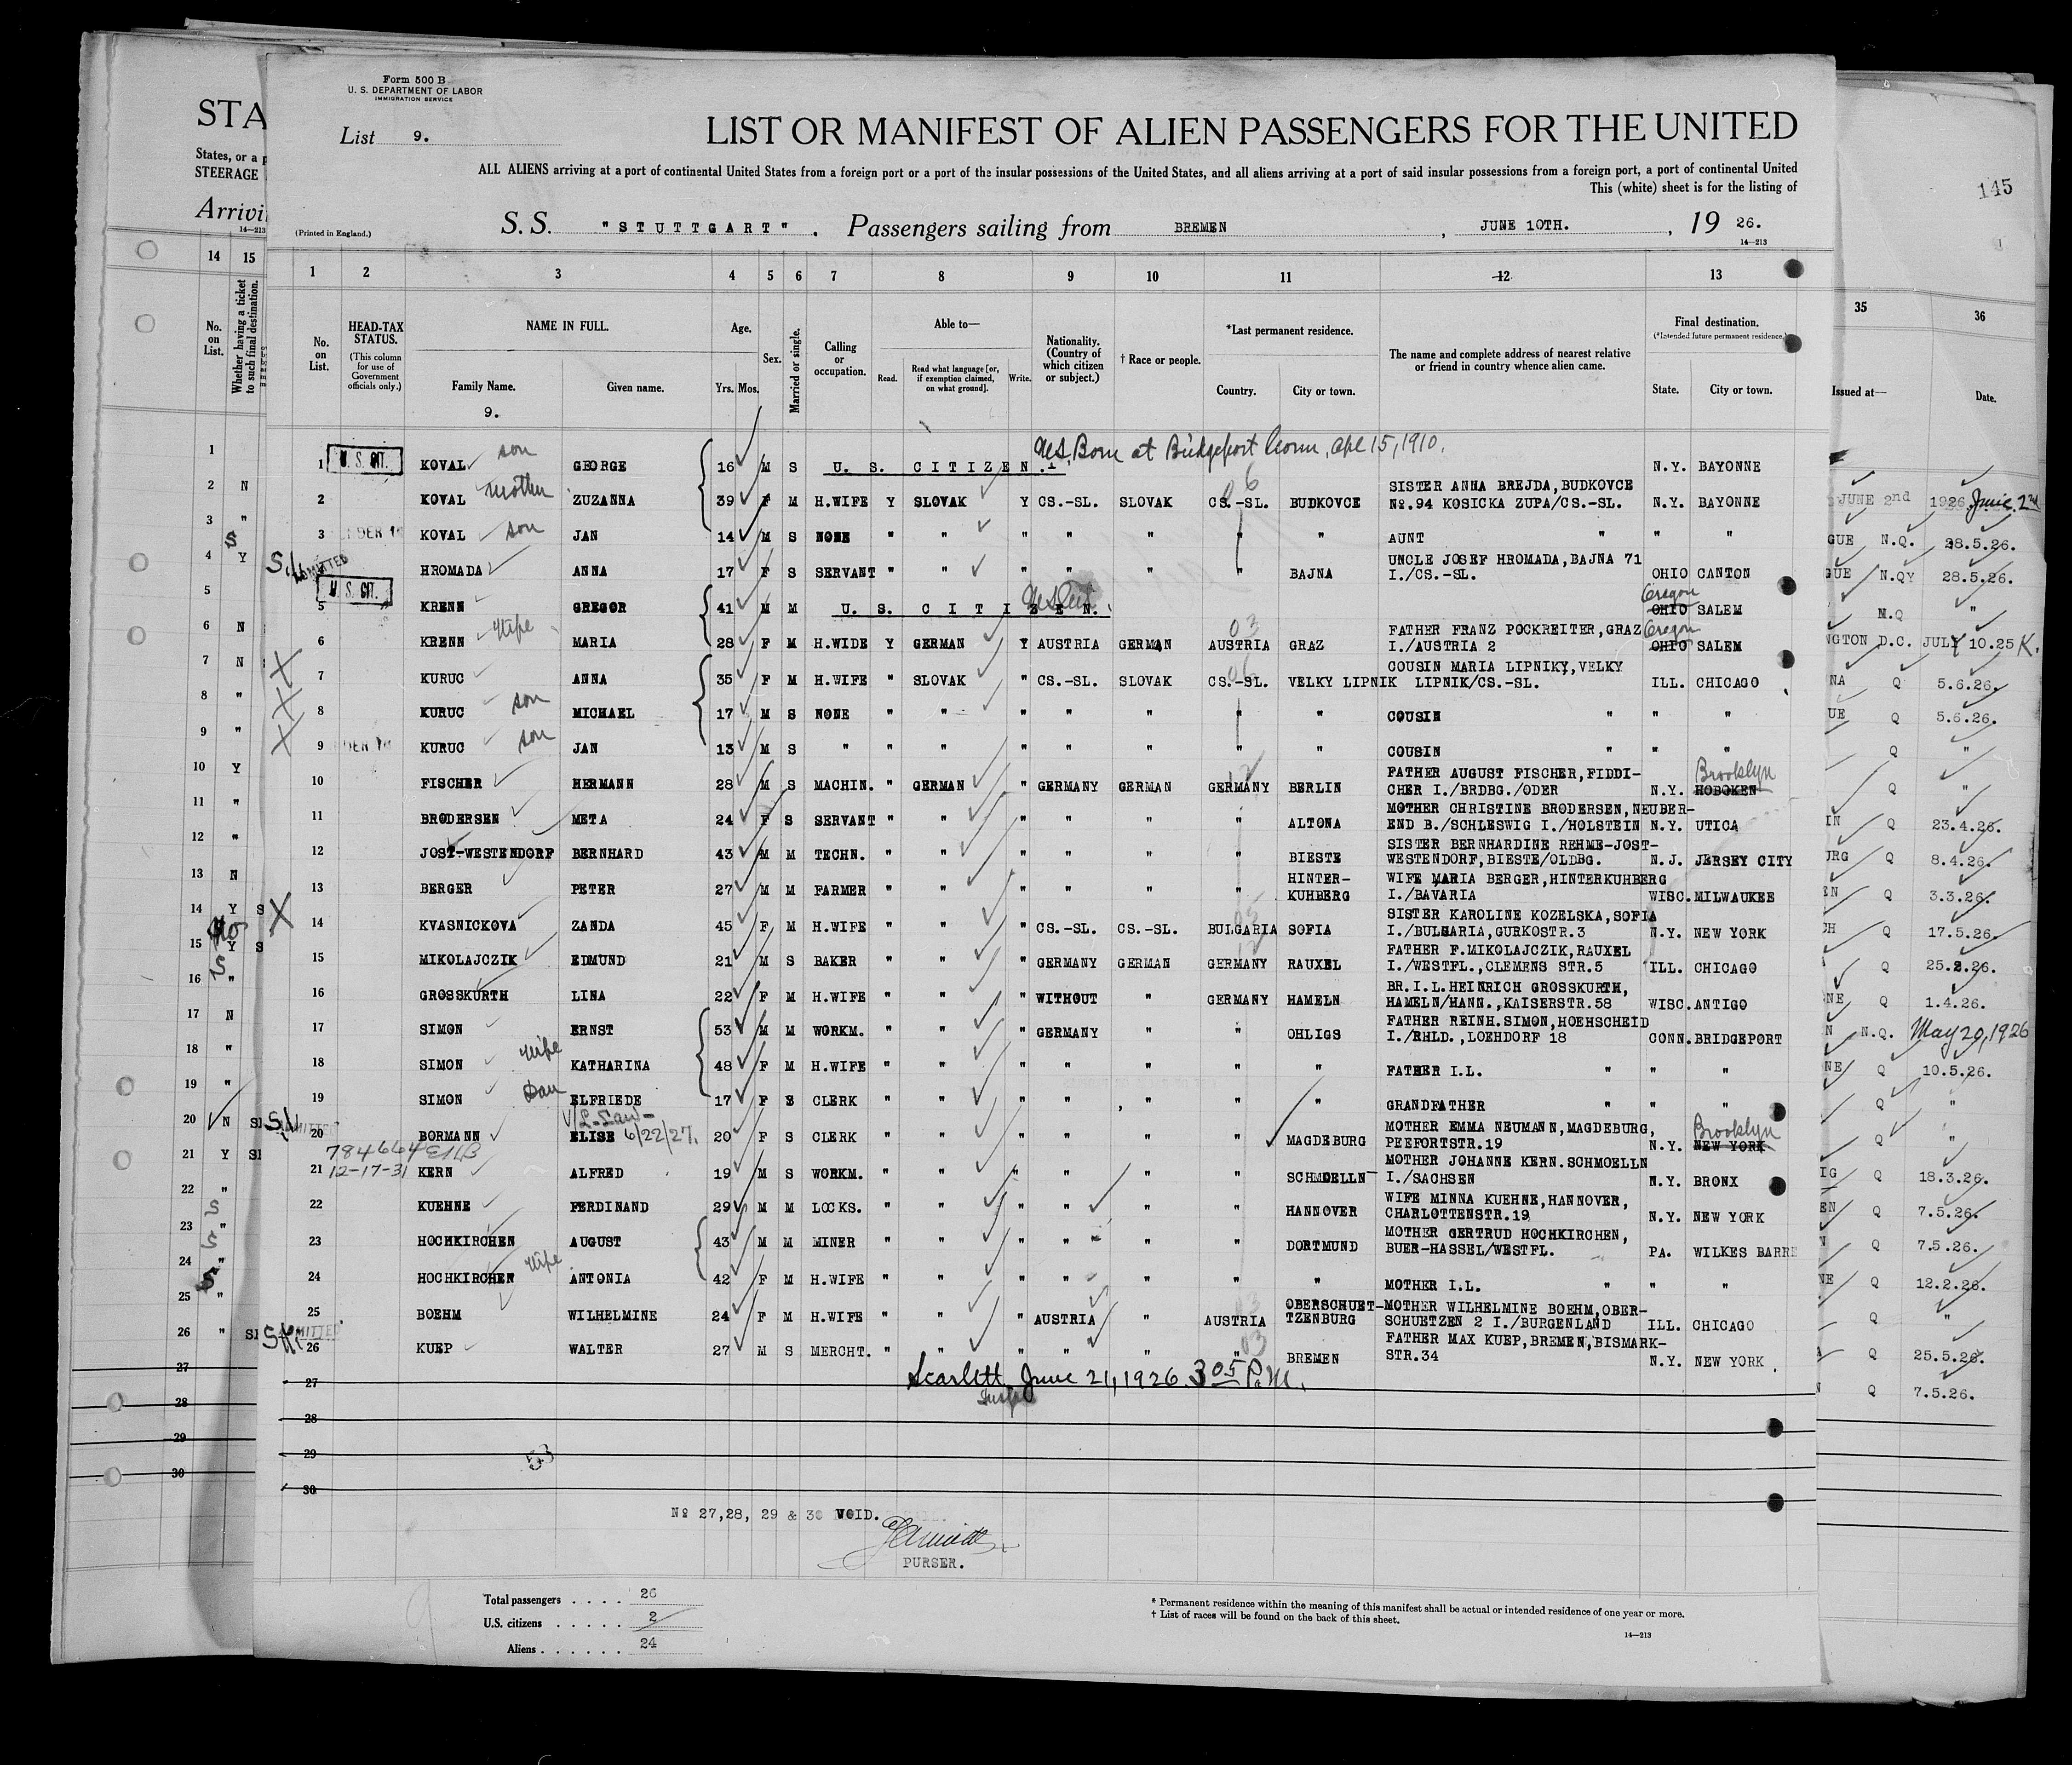 Form 500 B
U. S. DEPARTMENT OF LABOR
IMMIGRATION SERVICE
STA
List 9.
LIST OR MANIFEST OF ALIEN PASSENGERS FOR THE UNITED
States, or a p
STEERAGE
ALL ALIENS arriving at a port of continental United States from a foreign port or a port of the insular possessions of the United States, and all aliens arriving at a port of said insular possessions from a foreign port, a port of continental United
This (white) sheet is for the listing of
145
Arrivi
14—213
(Printed in England.)
S. S. "STUTTGART". Passengers sailing from BREMEN, JUNE 10TH., 19 26.
14—213
14 15 1 2 3 4 5 6 7 8 9 10 11 12 13 35 36
No. on List.
Whether having a ticket to such final destination.
No. on List.
HEAD-TAX STATUS.
(This column for use of Government officials only.)
NAME IN FULL.
Family Name. Given name.
9.
Age.
Yrs. Mos.
Sex.
Married or single.
Calling or occupation.
Able to—
Read. Read what language [or, if exemption claimed, on what ground]. Write.
Nationality. (Country of which citizen or subject.)
† Race or people.
*Last permanent residence.
Country. City or town.
The name and complete address of nearest relative or friend in country whence alien came.
Final destination.
(*Intended future permanent residence.)
State. City or town.
Issued at— Date.
1 U. S. CIT. KOVAL son GEORGE 16 M S U. S. CITIZEN. Born at Bridgeport Conn, Apl 15, 1910. N.Y. BAYONNE
2 KOVAL mother ZUZANNA 39 F M H.WIFE Y SLOVAK Y CS.-SL. SLOVAK CS.-SL. 06 BUDKOVCE SISTER ANNA BREJDA, BUDKOVCE
№.94 KOSICKA ZUPA/CS.-SL. N.Y. BAYONNE JUNE 2nd 1926 June 2nd
3 KOVAL son JAN 14 M S NONE " " " " " " " AUNT " " " GUE N.Q. 28.5.26.
4 ADMITTED HROMADA ANNA 17 F S SERVANT " " " " " " BAJNA UNCLE JOSEF HROMADA, BAJNA 71
I./CS.-SL. OHIO CANTON GUE N.QY 28.5.26.
5 U. S. CIT. KRENN GREGOR 41 M M U. S. CITIZEN. Oregon OHIO SALEM N.Q "
6 KRENN wife MARIA 28 F M H.WIDE Y GERMAN Y AUSTRIA GERMAN AUSTRIA 03 GRAZ FATHER FRANZ POCKREITER, GRAZ
I./AUSTRIA 2 Oregon OHIO SALEM NGTON D.C. JULY 10.25 K.
7 KURUC ANNA 35 F M H.WIFE " SLOVAK " CS.-SL. SLOVAK CS.-SL. 06 VELKY LIPNIK COUSIN MARIA LIPNIKY, VELKY
LIPNIK/CS.-SL. ILL. CHICAGO NA Q 5.6.26.
8 KURUC son MICHAEL 17 M S NONE " " " " " " " COUSIN " " " UE Q 5.6.26.
9 KURUC son JAN 13 M S " " " " " " " " COUSIN " " " Q "
10 FISCHER HERMANN 28 M S MACHIN. " GERMAN " GERMANY GERMAN GERMANY 12 BERLIN FATHER AUGUST FISCHER, FIDDI-
CHER I./BRDBG./ODER N.Y. Brooklyn HOBOKEN Q "
11 BRODERSEN META 24 F S SERVANT " " " " " " ALTONA MOTHER CHRISTINE BRODERSEN, NEUBER-
END B./SCHLESWIG I./HOLSTEIN N.Y. UTICA IN Q 23.4.26.
12 JOST-WESTENDORF BERNHARD 43 M M TECHN. " " " " " " BIESTE SISTER BERNHARDINE REHME-JOST-
WESTENDORF, BIESTE/OLDBG. N.J. JERSEY CITY URG Q 8.4.26.
13 BERGER PETER 27 M M FARMER " " " " " " HINTER-KUHBERG WIFE MARIA BERGER, HINTERKUHBERG
I./BAVARIA WISC. MILWAUKEE EN Q 3.3.26.
14 KVASNICKOVA ZANDA 45 F M H.WIFE " " " CS.-SL. CS.-SL. BULGARIA 05 SOFIA SISTER KAROLINE KOZELSKA, SOFIA
I./BULGARIA, GURKOSTR.3 N.Y. NEW YORK CH Q 17.5.26.
15 MIKOLAJCZIK EDMUND 21 M S BAKER " " " GERMANY GERMAN GERMANY 12 RAUXEL FATHER F.MIKOLAJCZIK, RAUXEL
I./WESTFL., CLEMENS STR.5 ILL. CHICAGO Q 25.2.26.
16 GROSSKURTH LINA 22 F M H.WIFE " " " WITHOUT " GERMANY HAMELN BR.I.L.HEINRICH GROSSKURTH,
HAMELN/HANN., KAISERSTR.58 WISC. ANTIGO NE Q 1.4.26.
17 SIMON ERNST 53 M M WORKM. " " " GERMANY " " OHLIGS FATHER REINH.SIMON, HOEHSCHEID
I./RHLD., LOEHDORF 18 CONN. BRIDGEPORT N N.Q. May 20, 1926
18 SIMON wife KATHARINA 48 F M H.WIFE " " " " " " " FATHER I.L. " " " NE Q 10.5.26.
19 SIMON Dau ELFRIEDE 17 F S CLERK " " " " " " " GRANDFATHER " " " Q "
20 ADMITTED BORMANN ELISE 6/22/27. 20 F S CLERK " " " " " " MAGDEBURG MOTHER EMMA NEUMANN, MAGDEBURG,
PEEFORTSTR.19 N.Y. Brooklyn NEW YORK Q "
784664
12-17-31
21 KERN ALFRED 19 M S WORKM. " " " " " " SCHMOELLN MOTHER JOHANNE KERN. SCHMOELLN
I./SACHSEN N.Y. BRONX IG Q 18.3.26.
22 KUEHNE FERDINAND 29 M M LOCKS. " " " " " " HANNOVER WIFE MINNA KUEHNE, HANNOVER,
CHARLOTTENSTR.19 N.Y. NEW YORK EN Q 7.5.26.
23 HOCHKIRCHEN AUGUST 43 M M MINER " " " " " " DORTMUND MOTHER GERTRUD HOCHKIRCHEN,
BUER-HASSEL/WESTFL. PA. WILKES BARRE N Q 7.5.26.
24 HOCHKIRCHEN wife ANTONIA 42 F M H.WIFE " " " " " " " MOTHER I.L. " " " NE Q 12.2.26.
25 BOEHM WILHELMINE 24 F M H.WIFE " " " AUSTRIA " AUSTRIA 03 OBERSCHUET-TZENBURG MOTHER WILHELMINE BOEHM, OBER-
SCHUETZEN 2 I./BURGENLAND ILL. CHICAGO Q "
26 ADMITTED KUEP WALTER 27 M S MERCHT. " " " " " " 03 BREMEN FATHER MAX KUEP, BREMEN, BISMARK-
STR.34 N.Y. NEW YORK A Q 25.5.26.
27 Scarlett June 21, 1926 3 05 P.M. N Q 7.5.26.
28
29 53
30
№ 27,28, 29 & 30 VOID.
PURSER.
Total passengers . . . . 26
U.S. citizens . . . . . 2
Aliens . . . . . . 24
* Permanent residence within the meaning of this manifest shall be actual or intended residence of one year or more.
† List of races will be found on the back of this sheet.
14—213